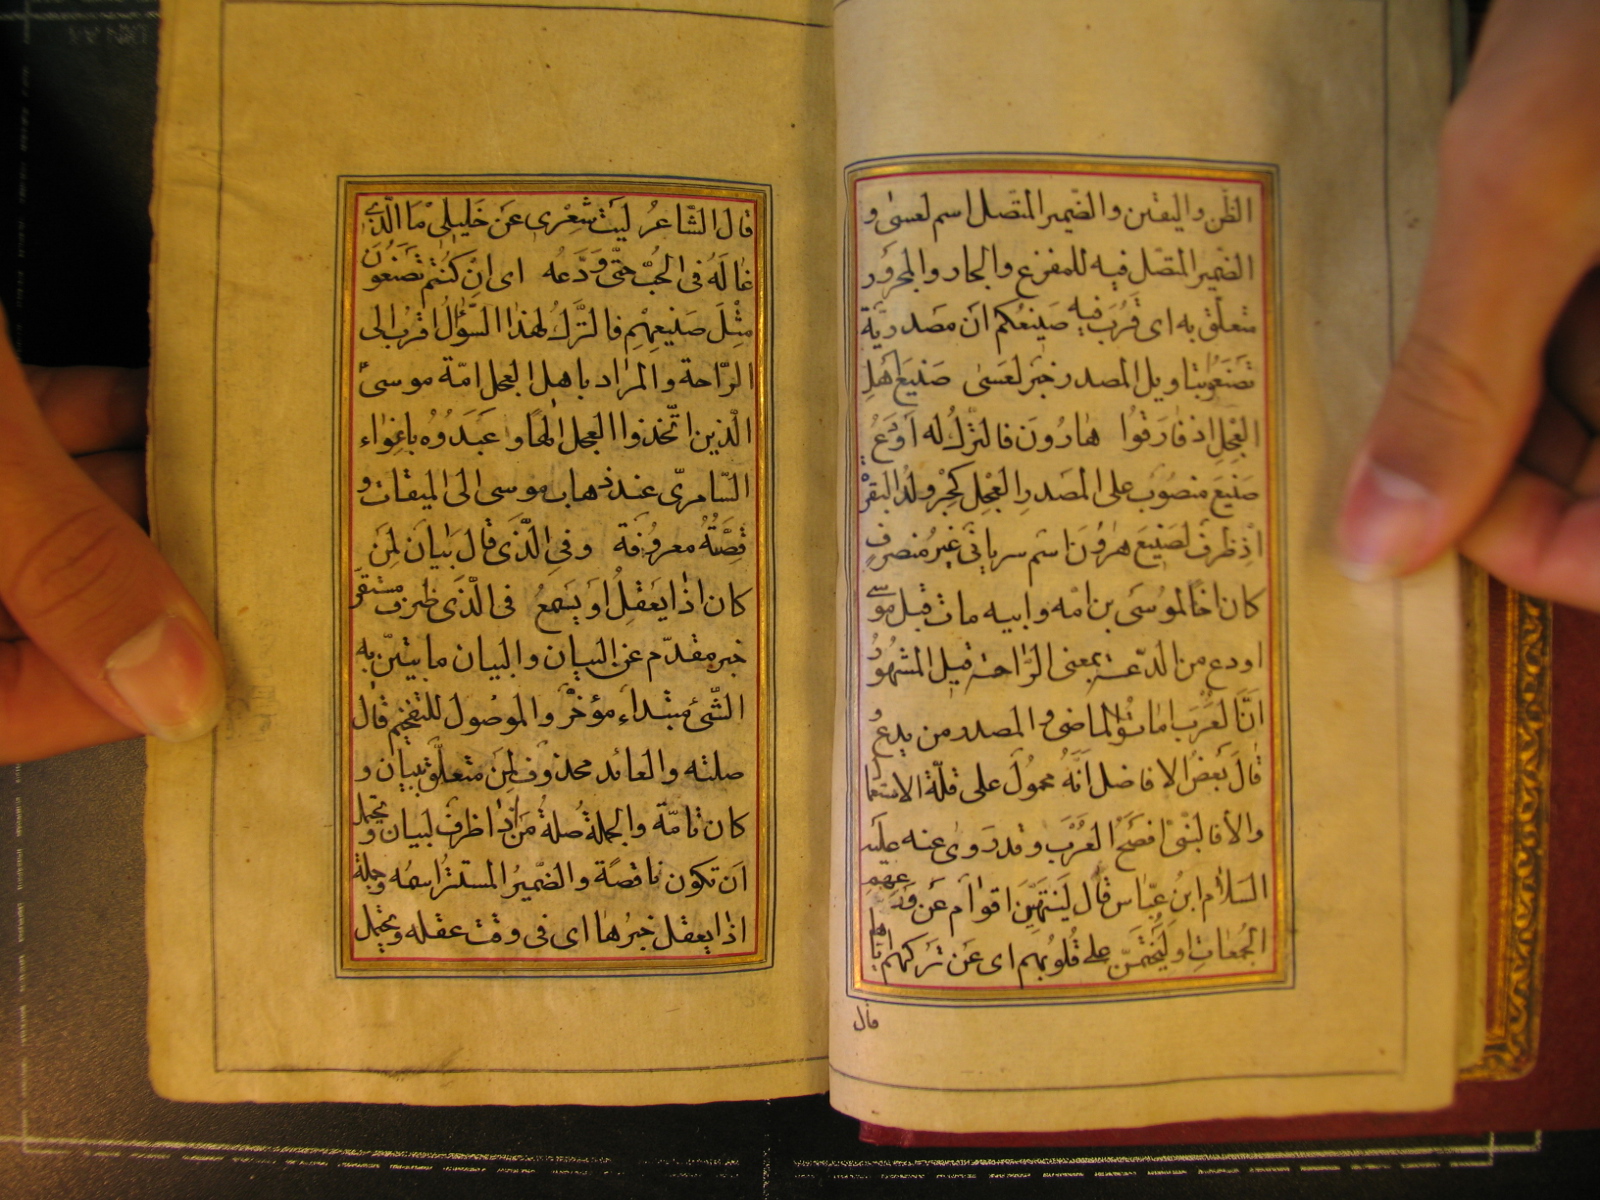 الظن واليقين والضمير المتصل اسم لعسى و
الضمير المتصل فيه للمفزع والجار والمجرور
متعلق به اى قرب فيه صنيعكم ان مصدرية
تصنعوا بتاويل المصدر خبر لعسى صنيع اهل
العجل اذ فارقوا هارون فالترك له اودع
صنيع منصوب على المصدر العجل كحبر ولد البقر
اذ ظرف لصنيع هرون اسم سرياني غير منصرف
كان اخا لموسى من امه وابيه مات قبل موسى
اودع من الدعة بمعنى الراحة قيل المشهور
ان العرب اماتوا الماضى والمصدر من يدع
قال بعض الافاضل انه محمول على قلة الاستعمال
والا فالنبي افصح العرب وقد روى عنه عليه
السلام ابن عباس قال لينتهين اقوام عن ودعهم
الجمعات او ليختمن على قلوبهم اى عن تركهم اياها
قال
قال الشاعر ليت شعرى عن خليلى ما الذى
غاله فى الحب حتى ودعه اى ان كنتم تصنعون
مثل صنيعهم فالترك لهذا السؤال اقرب الى
الراحة والمراد باهل العجل امة موسى
الذين اتخذوا العجل الها وعبدوه باغواء
السامرى عند ذهاب موسى الى الميقات و
قصته معروفة وفى الذى قال بيان لمن
كان اذا يعقل او يسمع فى الذى ظرف مستقر
خبر مقدم عن البيان والبيان ما يتبين به
الشئ مبتداء مؤخر والموصول للتفخيم قال
صلته والعائد محذوف لمن متعلق ببيان و
كان تامة والجملة صلة من اذا ظرف لبيان ويحتمل
ان تكون ناقصة والضمير المستتر اسمه وجملة
اذا يعقل خبرها اى فى وقت عقله ويحتمل